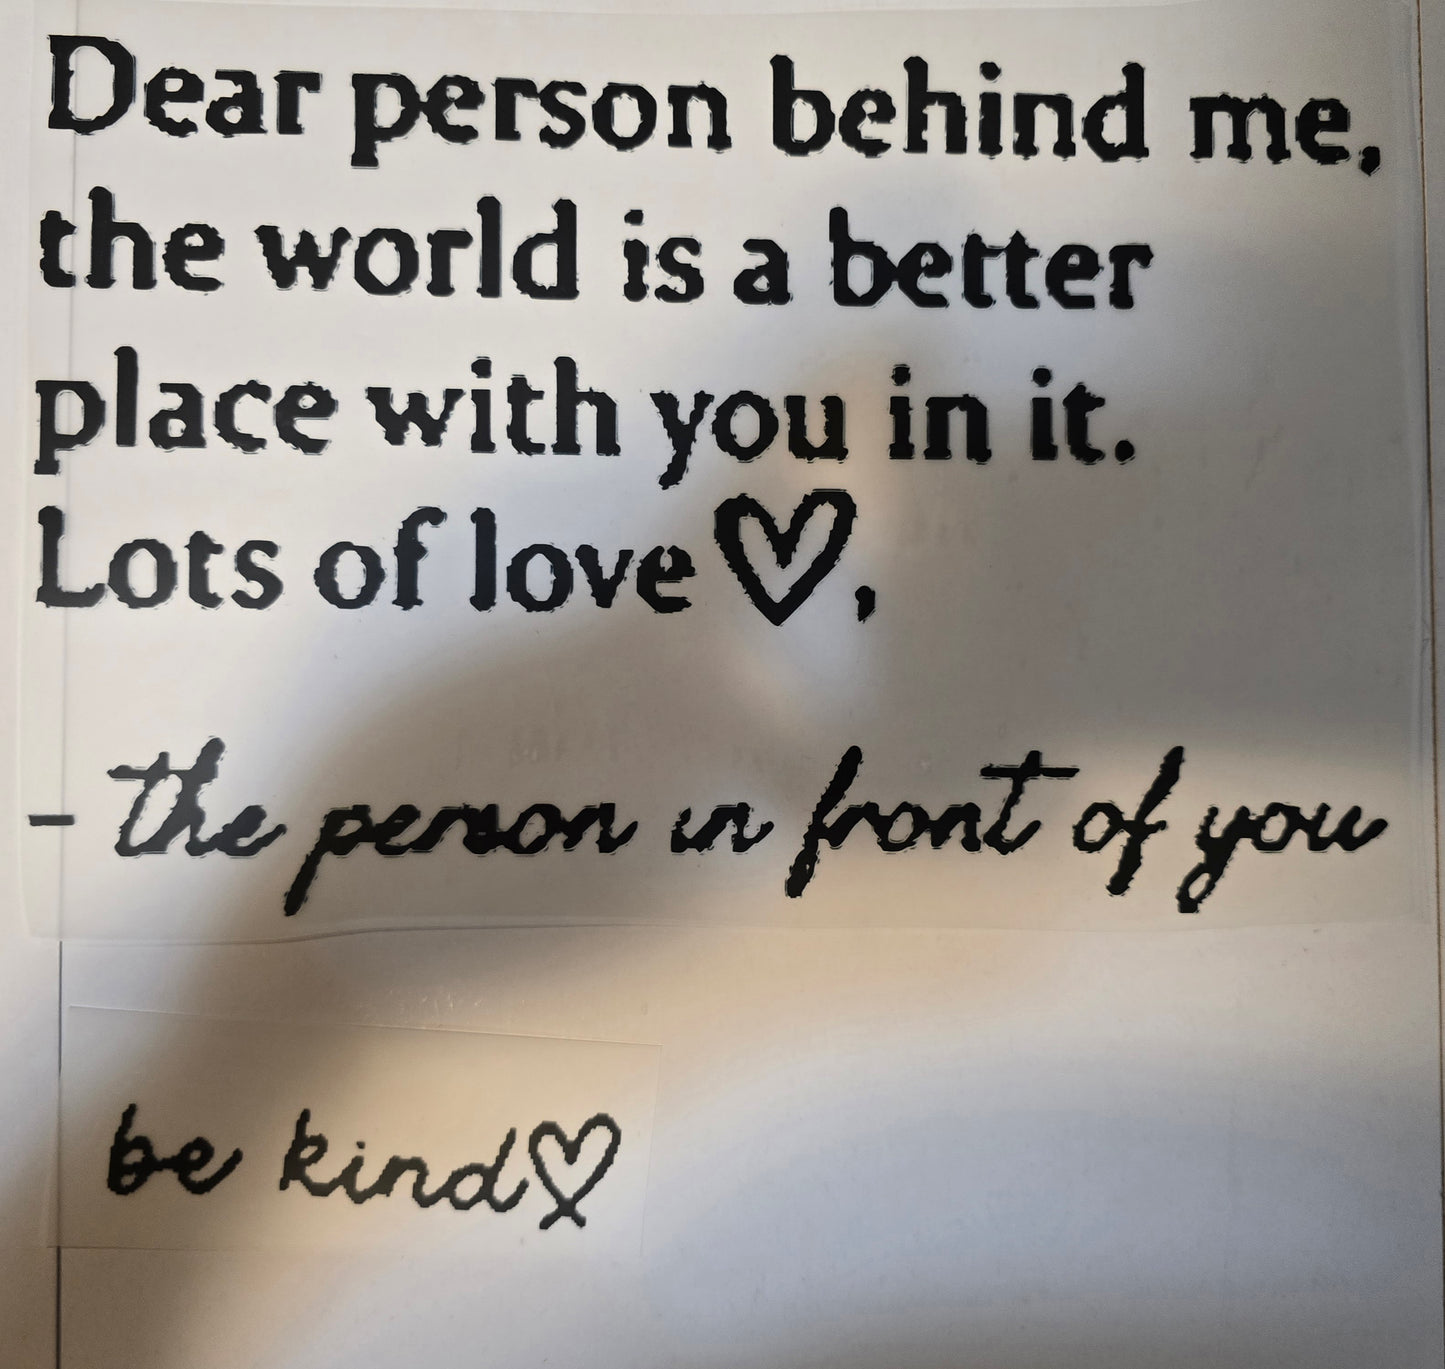 Dear person behind me,
the world is a better
place with you in it.
Lots of love ♡,
- the person in front of you
be kind♡